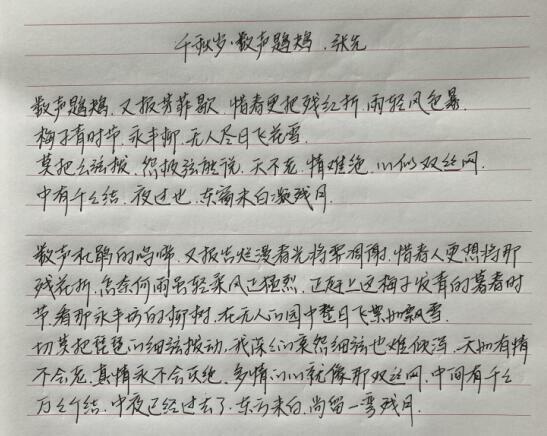 千秋岁·数声鶗鴂.张先
数声鶗鴂.又报芳菲歇.惜春更把残红折.雨轻风色暴.
梅子青时节.永丰柳.无人尽日飞花雪.
莫把幺弦拨.怨极弦能说.天不老.情难绝.心似双丝网.
中有千千结.夜过也.东窗未白凝残月.
数声杜鹃的鸣啼.又报告烂漫春光将要凋谢.惜春人更想将那
残花折.怎奈何雨虽轻柔风正猛烈.正赶上这梅子发青的暮春时
节.看那永丰坊的柳树.在无人的园中整日飞絮如飘雪.
切莫把琵琶的细弦拨动.我深的哀怨细弦也难倾泻.天如有情
不会老.真情永不会灭绝.多情的心就像那双丝网.中间有千千
万万个结.中夜已经过去了.东方未白.尚留一弯残月.